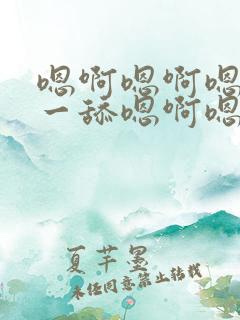 嗯啊嗯啊嗯
一舔嗯啊嗯
夏芊墨
未经同意禁止转载